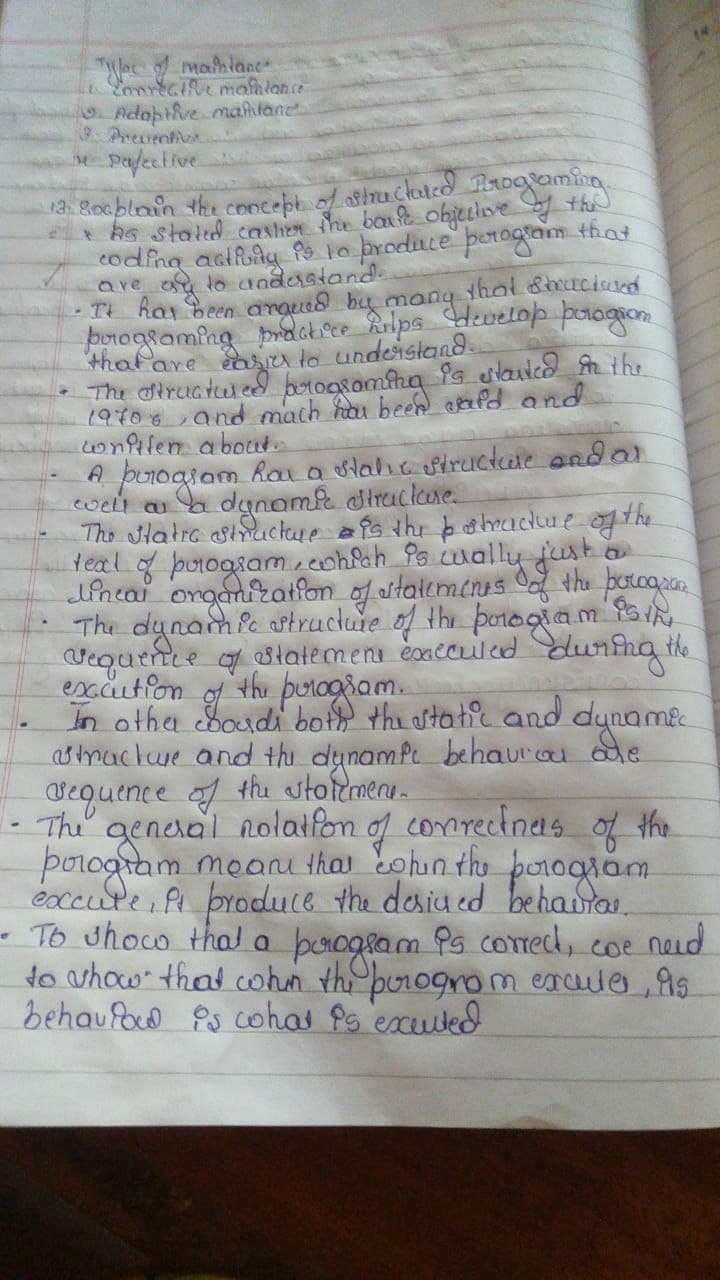 Type of maintance
1. Corrective maintance
2. Adaptive maintance
3. Preventive "
4 Pefective "
13. Explain the concept of structured Programing.
* As stated earlier the basic objective of the
coding activity is to produce program that
are easy to understand.
• It has been argued by many that structured
programing practice helps develop program
that are easier to understand.
• The structured programing is started in the
1970's, and mach has been said and
written about.
- A program has a static structure and as
well as a dynamic structure.
- The static structure is the structure of the
text of program, which is usally just a
linear organization of statements of the program
• The dynamic structure of the program is the
sequence of statement executed during the
excution of the program.
• In other words both the static and dynamic
structure and the dynamic behaviou are
sequence of the statement.
• The general notation of correctness of the
program means that when the program
excute, it produce the desired behavior.
• To show that a program is correct, we need
to show that when the program excutes, its
behaviour is what is excuted